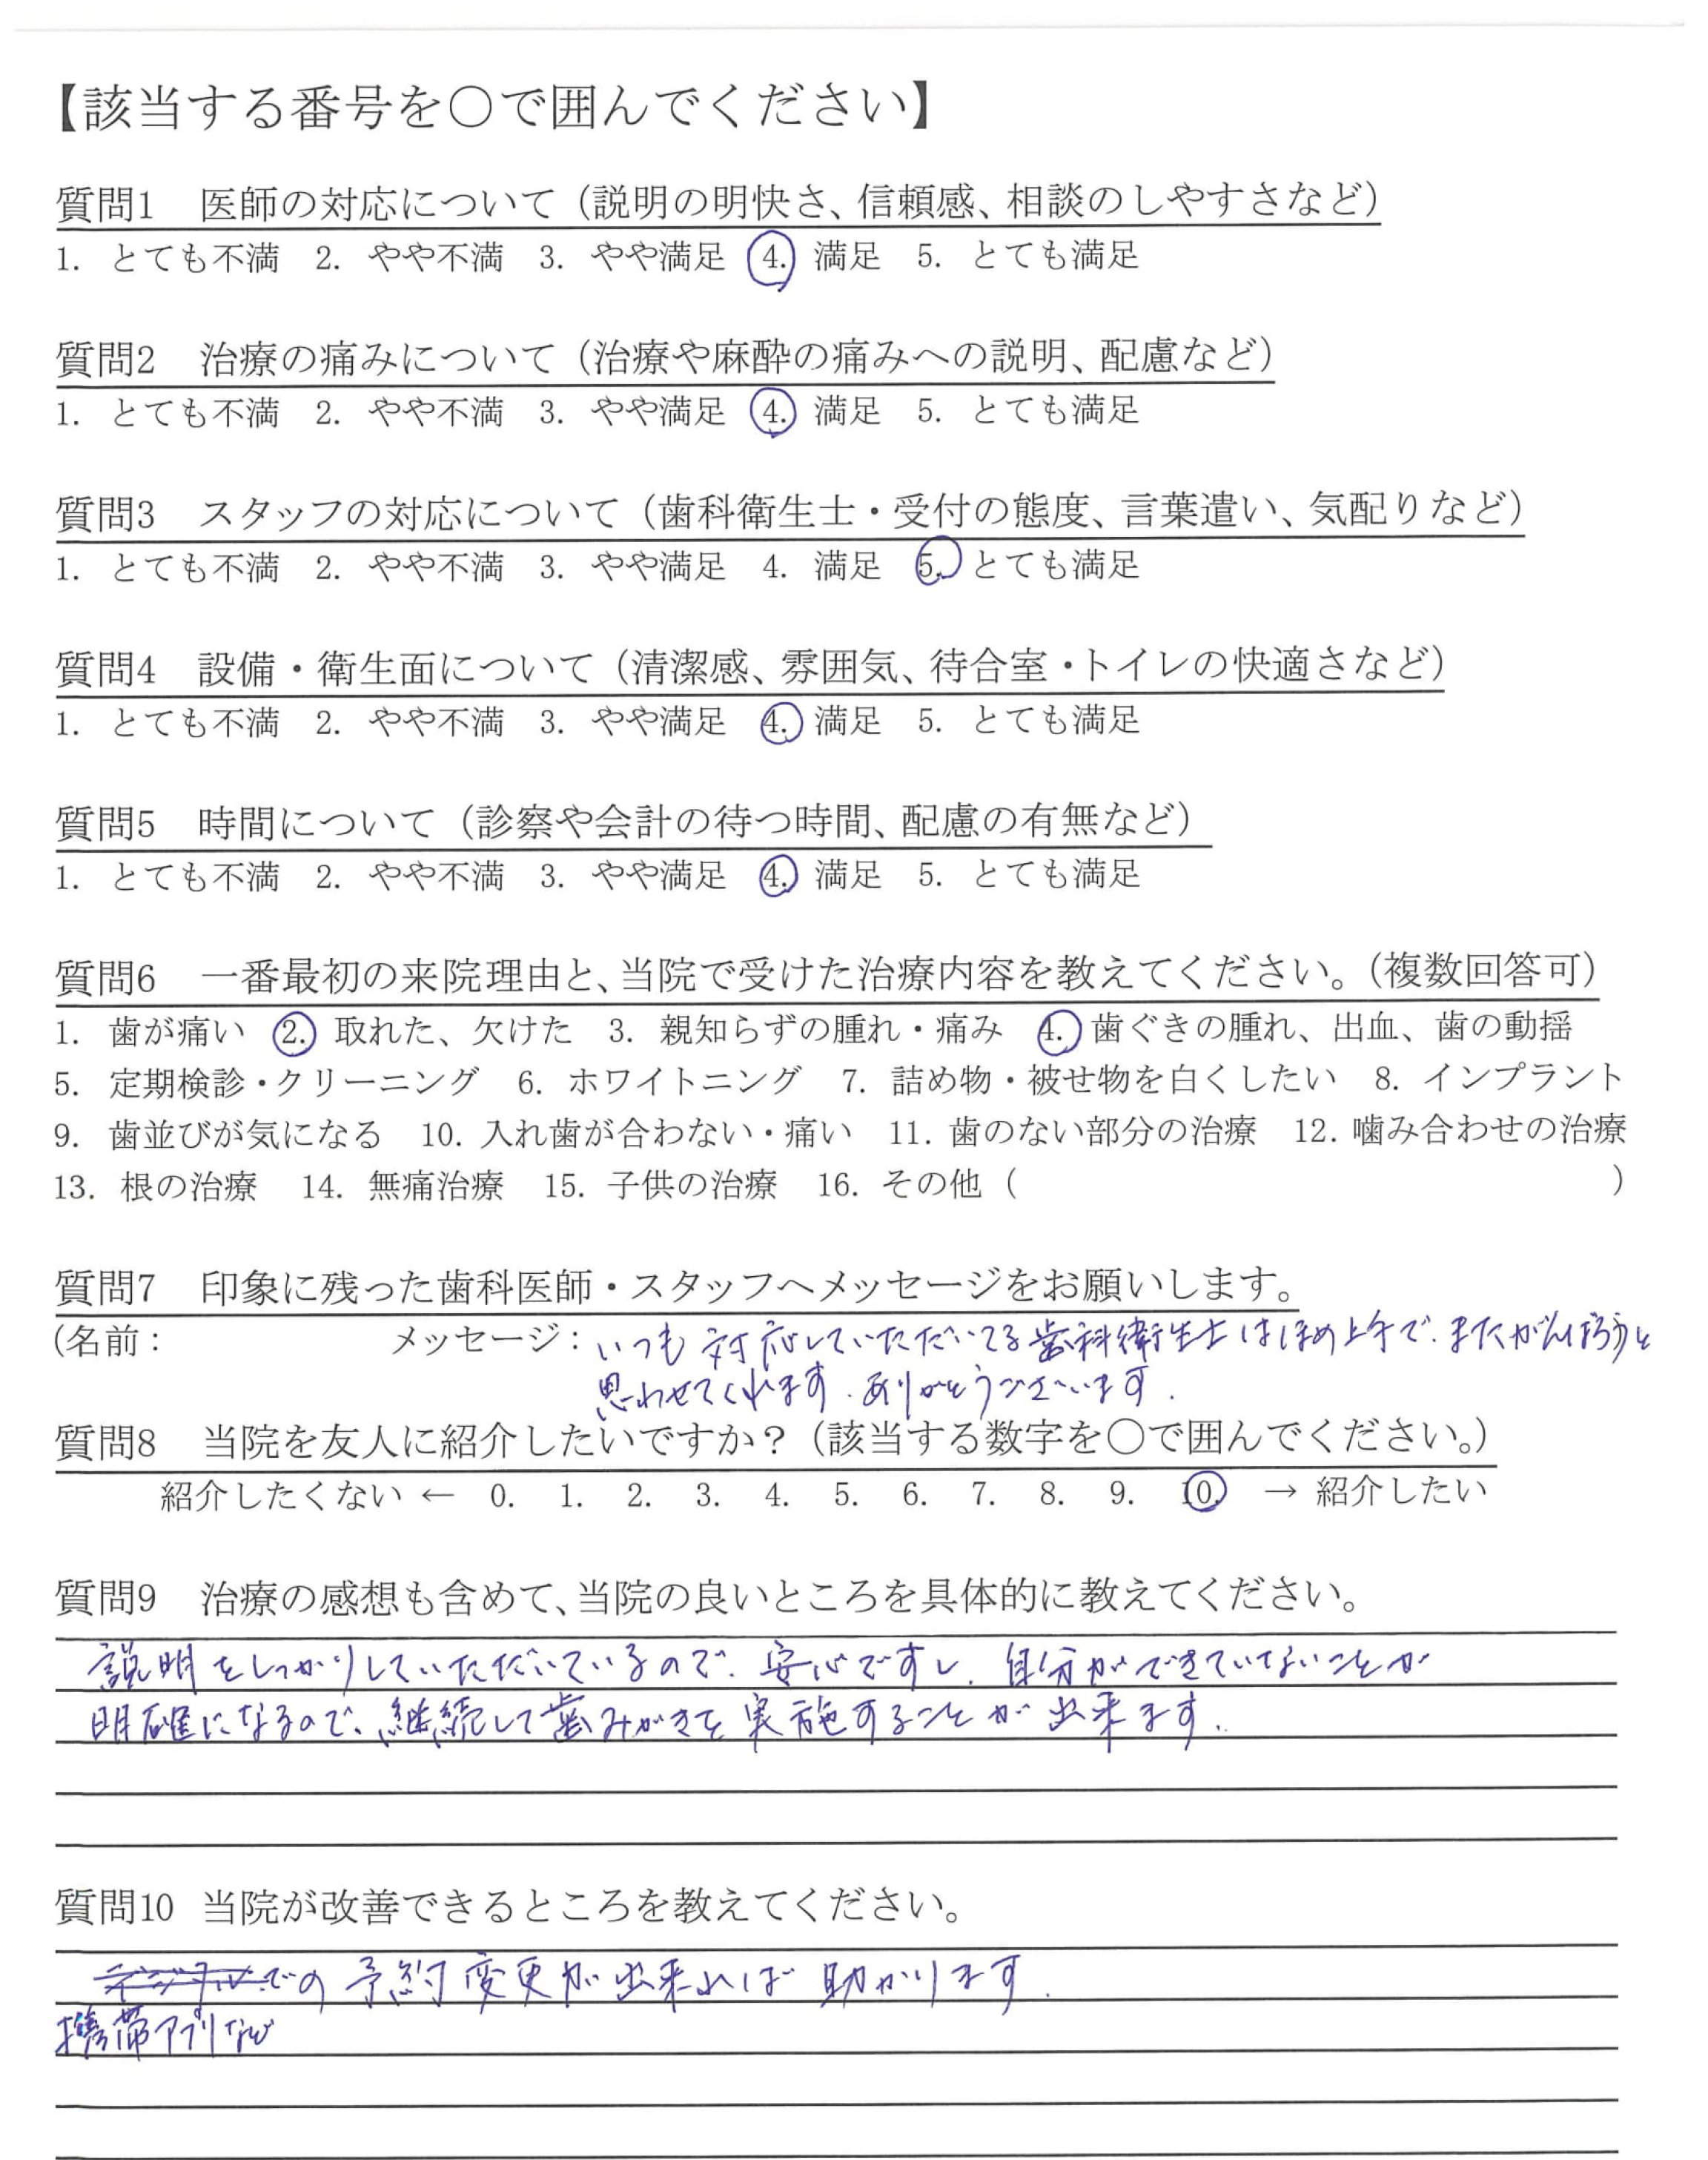 【該当する番号を○で囲んでください】
質問1 医師の対応について（説明の明快さ、信頼感、相談のしやすさなど）
1. とても不満 2. やや不満 3. やや満足 4. 満足 5. とても満足
質問2 治療の痛みについて（治療や麻酔の痛みへの説明、配慮など）
1. とても不満 2. やや不満 3. やや満足 4. 満足 5. とても満足
質問3 スタッフの対応について（歯科衛生士・受付の態度、言葉遣い、気配りなど）
1. とても不満 2. やや不満 3. やや満足 4. 満足 5. とても満足
質問4 設備・衛生面について（清潔感、雰囲気、待合室・トイレの快適さなど）
1. とても不満 2. やや不満 3. やや満足 4. 満足 5. とても満足
質問5 時間について（診察や会計の待つ時間、配慮の有無など）
1. とても不満 2. やや不満 3. やや満足 4. 満足 5. とても満足
質問6 一番最初の来院理由と、当院で受けた治療内容を教えてください。（複数回答可）
1. 歯が痛い 2. 取れた、欠けた 3. 親知らずの腫れ・痛み 4. 歯ぐきの腫れ、出血、歯の動揺
5. 定期検診・クリーニング 6. ホワイトニング 7. 詰め物・被せ物を白くしたい 8. インプラント
9. 歯並びが気になる 10. 入れ歯が合わない・痛い 11. 歯のない部分の治療 12. 噛み合わせの治療
13. 根の治療 14. 無痛治療 15. 子供の治療 16. その他（ ）
質問7 印象に残った歯科医師・スタッフへメッセージをお願いします。
（名前： メッセージ：いつも対応していただいてる歯科衛生士はほめ上手で、またがんばろうと
思わせてくれます。ありがとうございます。
質問8 当院を友人に紹介したいですか？（該当する数字を○で囲んでください。）
紹介したくない ← 0. 1. 2. 3. 4. 5. 6. 7. 8. 9. 10. → 紹介したい
質問9 治療の感想も含めて、当院の良いところを具体的に教えてください。
説明をしっかりしていただいているので、安心ですし、自分ができていないことが
明確になるので、継続して歯みがきを実施することが出来ます。
質問10 当院が改善できるところを教えてください。
デジタルでの予約変更が出来れば助かります。
携帯アプリなど